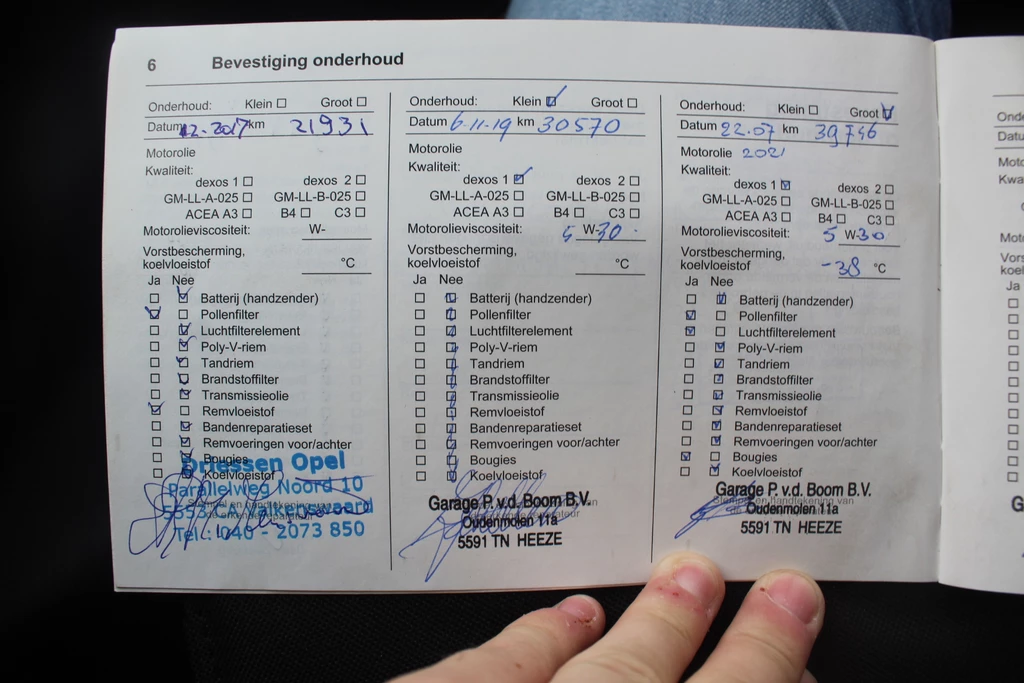 6 Bevestiging onderhoud
Onderhoud: Klein Groot
Datum 12.2017 km 21931
Motorolie
Kwaliteit:
dexos 1 dexos 2
GM-LL-A-025 GM-LL-B-025
ACEA A3 B4 C3
Motorolieviscositeit: W-
Vorstbescherming,
koelvloeistof °C
Ja Nee
Batterij (handzender)
Pollenfilter
Luchtfilterelement
Poly-V-riem
Tandriem
Brandstoffilter
Transmissieolie
Remvloeistof
Bandenreparatieset
Remvoeringen voor/achter
Bougies
Koelvloeistof
Driessen Opel
Parallelweg Noord 10
Valkenswaard
Tel.: 040 - 2073 850
Onderhoud: Klein Groot
Datum 6-11-19 km 30570
Motorolie
Kwaliteit:
dexos 1 dexos 2
GM-LL-A-025 GM-LL-B-025
ACEA A3 B4 C3
Motorolieviscositeit: 5 W-30
Vorstbescherming,
koelvloeistof °C
Ja Nee
Batterij (handzender)
Pollenfilter
Luchtfilterelement
Poly-V-riem
Tandriem
Brandstoffilter
Transmissieolie
Remvloeistof
Bandenreparatieset
Remvoeringen voor/achter
Bougies
Koelvloeistof
Garage P. v.d. Boom B.V.
Oudenmolen 11a
5591 TN HEEZE
Onderhoud: Klein Groot
Datum 22.07 km 39746
Motorolie 2021
Kwaliteit:
dexos 1 dexos 2
GM-LL-A-025 GM-LL-B-025
ACEA A3 B4 C3
Motorolieviscositeit: 5 W-30
Vorstbescherming,
koelvloeistof -38 °C
Ja Nee
Batterij (handzender)
Pollenfilter
Luchtfilterelement
Poly-V-riem
Tandriem
Brandstoffilter
Transmissieolie
Remvloeistof
Bandenreparatieset
Remvoeringen voor/achter
Bougies
Koelvloeistof
Garage P. v.d. Boom B.V.
Stempel en handtekening van
Oudenmolen 11a
5591 TN HEEZE